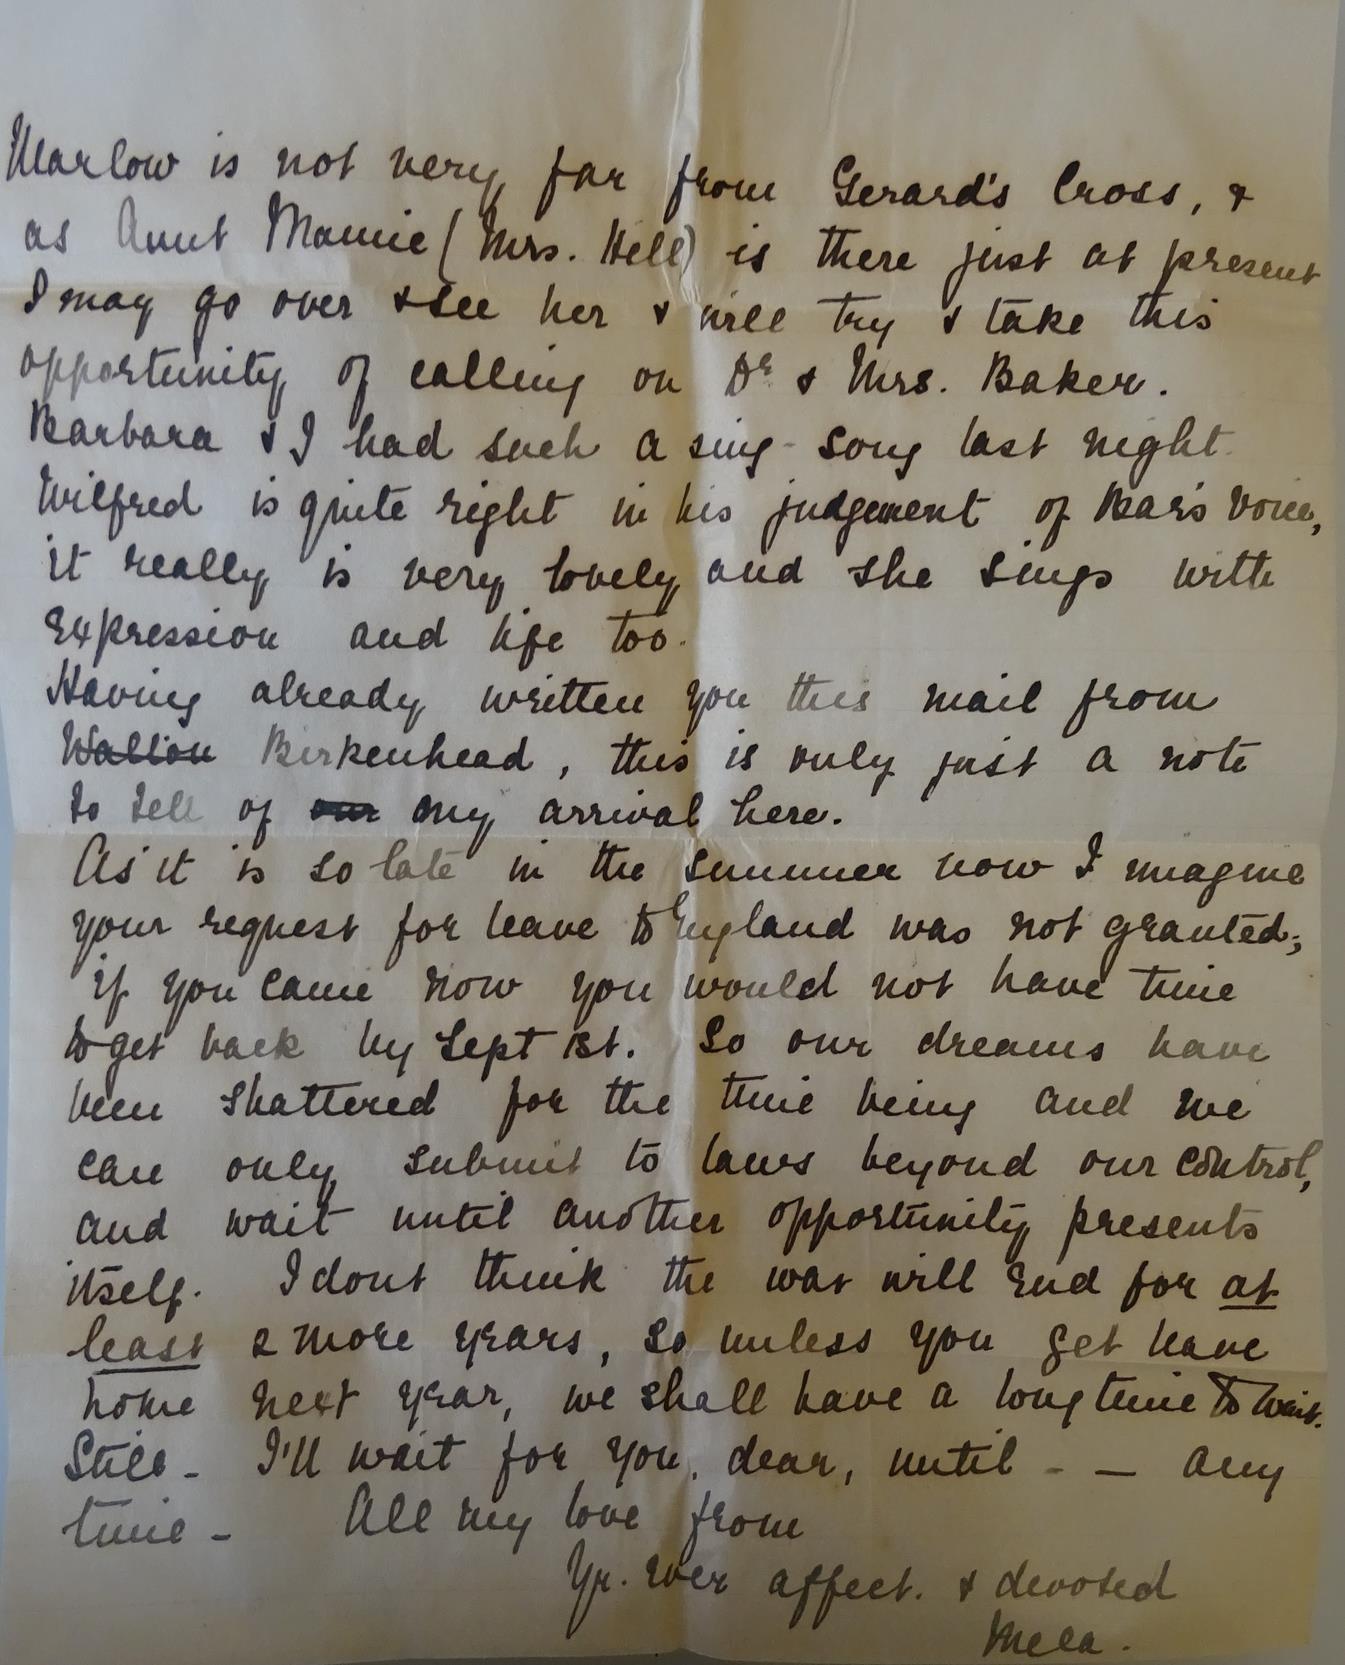 Marlow is not very far from Gerard's Cross, &
as Aunt Mamie (Mrs. Hell) is there just at present
I may go over & see her & will try & take this
opportunity of calling on Dr & Mrs. Baker.
Barbara & I had such a sing-song last night.
Wilfred is quite right in his judgement of Bar's voice,
it really is very lovely and she sings with
expression and life too.
Having already written you this mail from
Wallion Birkenhead, this is only just a note
to tell of our my arrival here.
As it is so late in the summer now I imagine
your request for leave to England was not granted;
if you came now you would not have time
to get back by Sept 1st. So our dreams have
been shattered for the time being and we
can only submit to laws beyond our control,
and wait until another opportunity presents
itself. I dont think the war will end for at
least 2 more years, so unless you get leave
home next year, we shall have a long time to wait.
Still - I'll wait for you, dear, until - - any
time - All my love from
Yr. ever affect. & devoted
Mela.